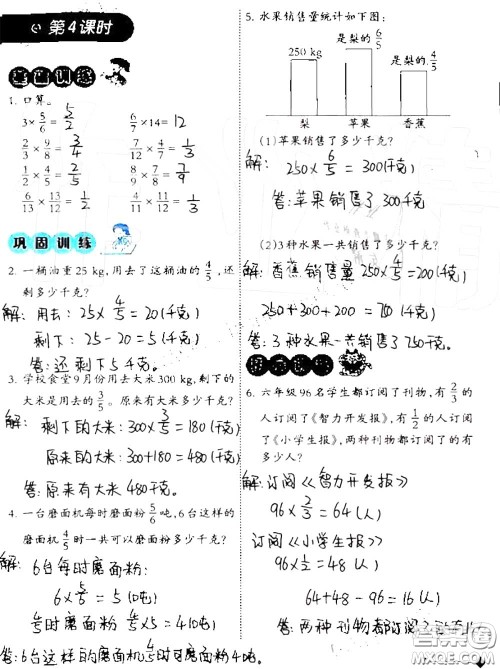 第4课时
基础训练
1. 口算。
3×5/6=5/2 6/7×14=12
2/3×9/8=3/4 7/9×3/7=1/3
2/9×3/8=1/12
6/13×13/12=1/2 4/9×3/4=1/3
巩固训练
2. 一桶油重25 kg,用去了这桶油的4/5,还
剩多少千克?
解: 用去: 25×4/5=20(千克)
剩下: 25-20=5(千克)
答: 还剩5千克。
3. 学校食堂9月份用去大米300 kg,剩下的
大米是用去的3/5。原来有大米多少千克?
解: 剩下的大米: 300×3/5=180(千克)
原来的大米: 300+180=480(千克)
答: 原来有大米480千克。
4. 一台磨面机每时磨面粉5/6吨,6台这样的
磨面机4/5时一共可以磨面粉多少千克?
解: 6台每时磨面粉:
6×5/6=5(吨)
4/5时磨面粉 5×4/5=4(吨)
答: 6台这样的磨面机4/5时可磨面粉4吨。
5. 水果销售量统计如下图:
是梨的6/5
250 kg
是梨的4/5
梨 苹果 香蕉
(1)苹果销售了多少千克?
解: 250×6/5=300(千克)
答: 苹果销售了300千克
(2)3种水果一共销售了多少千克?
解: 香蕉销售量 250×4/5=200(千克)
250+300+200=750(千克)
答: 3种水果一共销售了750千克。
6. 六年级96名学生都订阅了刊物,有2/3的
人订阅了《智力开发报》,有1/2的人订阅了
《小学生报》,两种刊物都订阅了的有
多少人?
解: 订阅《智力开发报》
96×2/3=64(人)
订阅《小学生报》
96×1/2=48(人)
64+48-96=16(人)
答: 两种刊物都订阅了